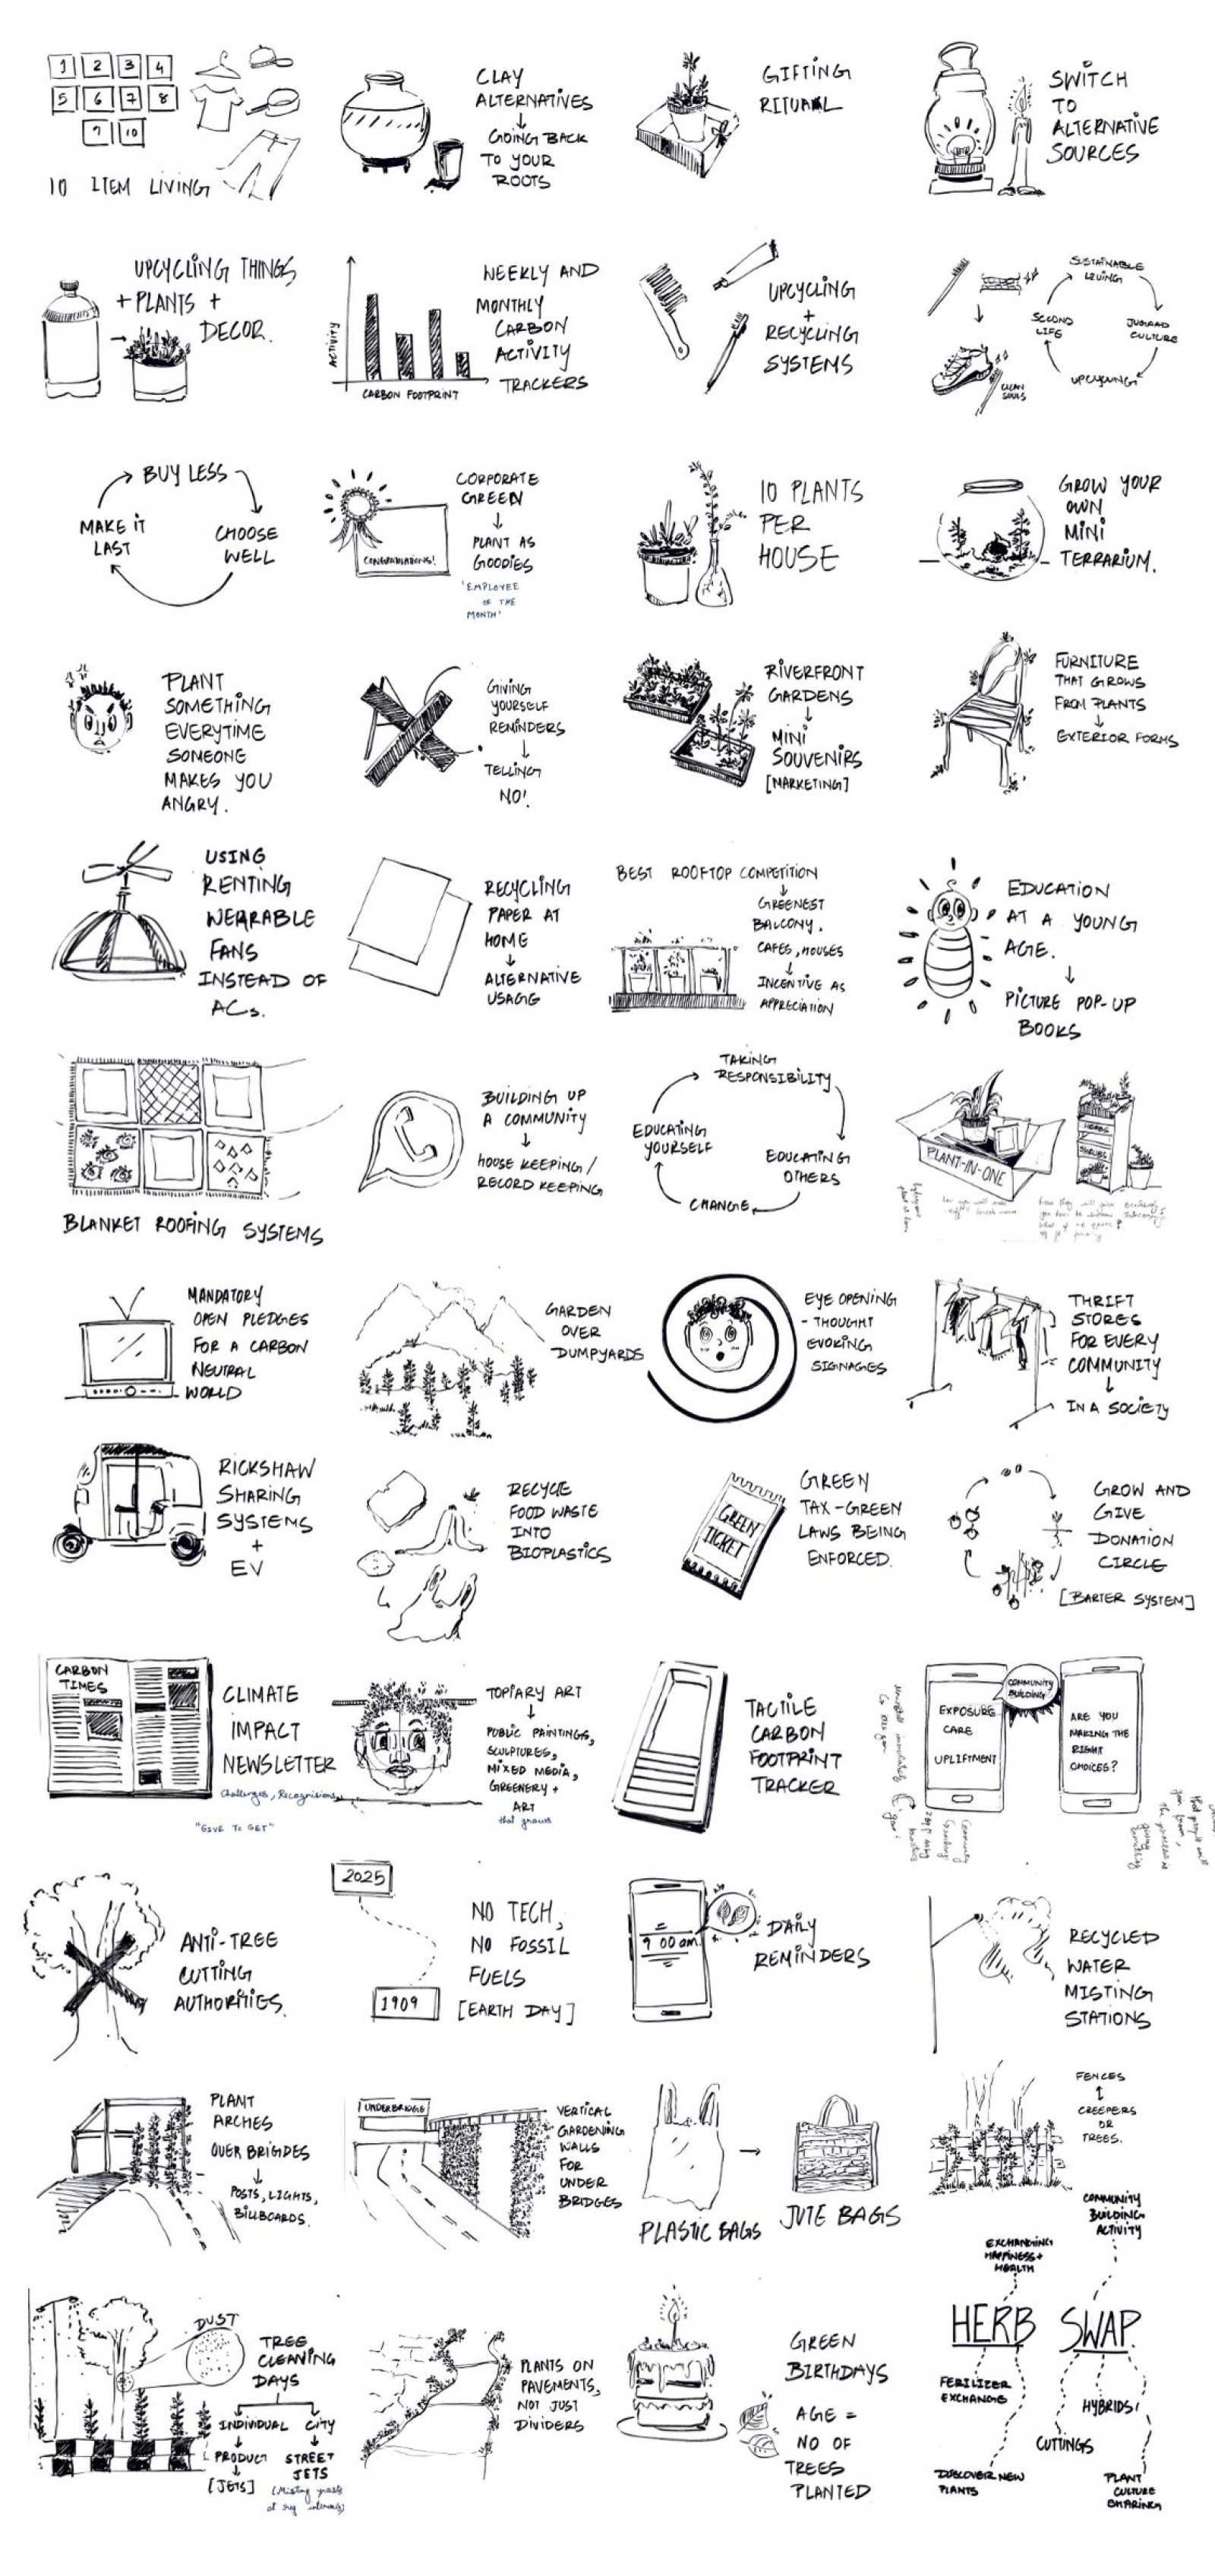 1 2 3 4
5 6 7 8
9 10
10 ITEM LIVING
CLAY
ALTERNATIVES
↓
GOING BACK
TO YOUR
ROOTS
GIFTING
RITUAL
SWITCH
TO
ALTERNATIVE
SOURCES
UPCYCLING THINGS
+ PLANTS +
DECOR.
ACTIVITY
CARBON FOOTPRINT
WEEKLY AND
MONTHLY
CARBON
ACTIVITY
TRACKERS
UPCYCLING
+
RECYCLING
SYSTEMS
SUSTAINABLE
LIVING
JUGAAD
CULTURE
UPCYCLING
SECOND
LIFE
CLEAN
SOULS
BUY LESS
CHOOSE
WELL
MAKE IT
LAST
CONGRATULATIONS!
CORPORATE
GREEN
↓
PLANT AS
GOODIES
'EMPLOYEE
OF THE
MONTH'
10 PLANTS
PER
HOUSE
GROW YOUR
OWN
MINI
TERRARIUM.
PLANT
SOMETHING
EVERYTIME
SOMEONE
MAKES YOU
ANGRY.
GIVING
YOURSELF
REMINDERS
↓
TELLING
NO!
RIVERFRONT
GARDENS
↓
MINI
SOUVENIRS
[MARKETING]
FURNITURE
THAT GROWS
FROM PLANTS
↓
EXTERIOR FORMS
USING
RENTING
WEARABLE
FANS
INSTEAD OF
ACs.
RECYCLING
PAPER AT
HOME
↓
ALTERNATIVE
USAGE
BEST ROOFTOP COMPETITION
↓
GREENEST
BALCONY.
CAFES, HOUSES
↓
INCENTIVE AS
APPRECIATION
EDUCATION
AT A YOUNG
AGE.
↓
PICTURE POP-UP
BOOKS
BLANKET ROOFING SYSTEMS
BUILDING UP
A COMMUNITY
↓
HOUSE KEEPING/
RECORD KEEPING
TAKING
RESPONSIBILITY
EDUCATING
OTHERS
CHANGE
EDUCATING
YOURSELF
PLANT-IN-ONE
HERBS
SHRUBS
MANDATORY
OPEN PLEDGES
FOR A CARBON
NEUTRAL
WORLD
GARDEN
OVER
DUMPYARDS
EYE OPENING
- THOUGHT
EVOKING
SIGNAGES
THRIFT
STORES
FOR EVERY
COMMUNITY
↓
IN A SOCIETY
RICKSHAW
SHARING
SYSTEMS
+
EV
RECYCLE
FOOD WASTE
INTO
BIOPLASTICS
GREEN
TICKET
GREEN
TAX-GREEN
LAWS BEING
ENFORCED.
GROW AND
GIVE
DONATION
CIRCLE
[BARTER SYSTEM]
CARBON
TIMES
CLIMATE
IMPACT
NEWSLETTER
Challenges, Recognitions
"GIVE TO GET"
TOPIARY ART
↓
PUBLIC PAINTINGS,
SCULPTURES,
MIXED MEDIA,
GREENERY +
ART
that grows
TACTILE
CARBON
FOOTPRINT
TRACKER
EXPOSURE
CARE
UPLIFTMENT
COMMUNITY
BUILDING
ARE YOU
MAKING THE
RIGHT
CHOICES?
ANTI-TREE
CUTTING
AUTHORITIES.
2025
1909
NO TECH,
NO FOSSIL
FUELS
[EARTH DAY]
9 00 am
DAILY
REMINDERS
RECYCLED
WATER
MISTING
STATIONS
PLANT
ARCHES
OVER BRIGDES
↓
POSTS, LIGHTS,
BILLBOARDS.
UNDERBRIDGE
VERTICAL
GARDENING
WALLS
FOR
UNDER
BRIDGES
PLASTIC BAGS
→
JUTE BAGS
FENCES
↕
CREEPERS
OR
TREES.
DUST
TREE
CLEANING
DAYS
INDIVIDUAL CITY
PRODUCT STREET
[JETS] JETS
PLANTS ON
PAVEMENTS,
NOT JUST
DIVIDERS
GREEN
BIRTHDAYS
AGE =
NO OF
TREES
PLANTED
COMMUNITY
BUILDING
ACTIVITY
EXCHANGING
HAPPINESS +
HEALTH
HERB SWAP
FERILIZER
EXCHANGE
HYBRIDS
CUTTINGS
DISCOVER NEW
PLANTS
PLANT
CULTURE
SHARING